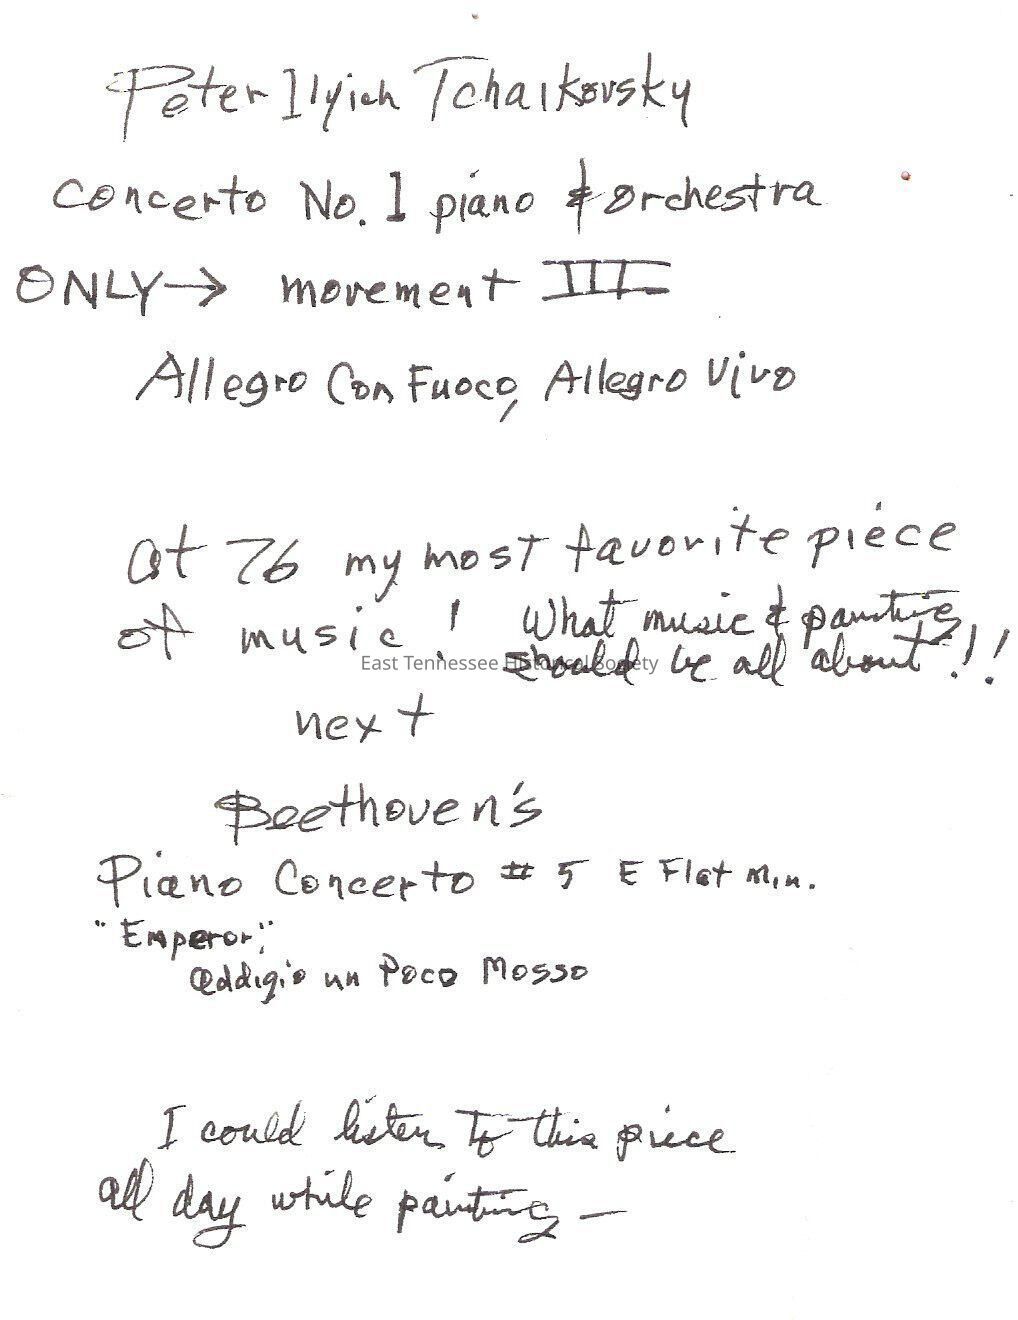 Peter Ilyich Tchaikovsky
Concerto No. 1 piano & orchestra
ONLY → movement III
Allegro Con Fuoco, Allegro Vivo
at 76 my most favorite piece
of music! What music & painting
should be all about!!
East Tennessee Historical Society
next
Beethoven's
Piano Concerto # 5 E Flat Min.
"Emperor,"
addigio un Poco Mosso
I could listen to this piece
all day while painting —